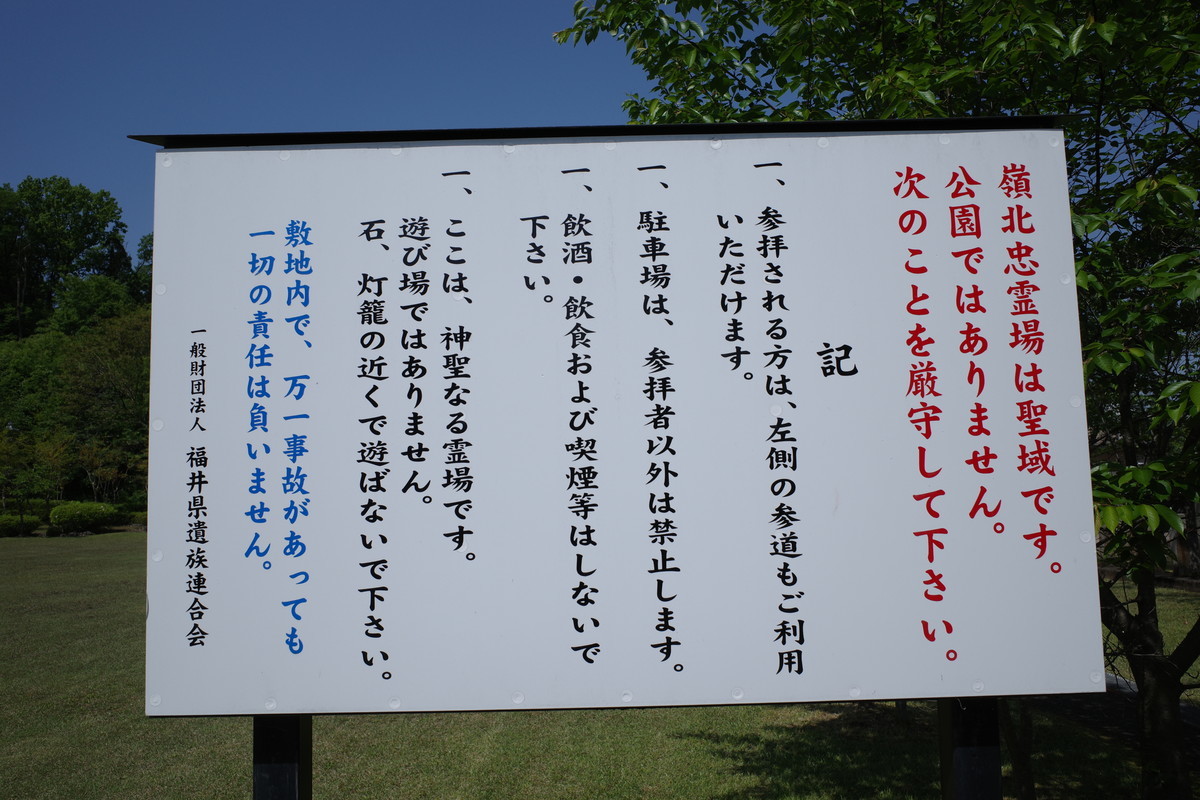 嶺北忠霊場は聖域です。
公園ではありません。
次のことを厳守して下さい。
記
一、参拝される方は、左側の参道もご利用
いただけます。
一、駐車場は、参拝者以外は禁止します。
一、飲酒・飲食および喫煙等はしないで
下さい。
一、ここは、神聖なる霊場です。
遊び場ではありません。
石、灯籠の近くで遊ばないで下さい。
敷地内で、万一事故があっても
一切の責任は負いません。
一般財団法人 福井県遺族連合会